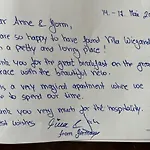 14.-17. Mai 20
ar Anne & Bjorn,
are so happy to have found Villa Wiegand
a pretty and loving place!
ank you for the great breakfast on the gr
race with the beautiful view.
a very magical apartment where we
to spend our time.
ank you very much for the hospitality.
est wishes
from Germany